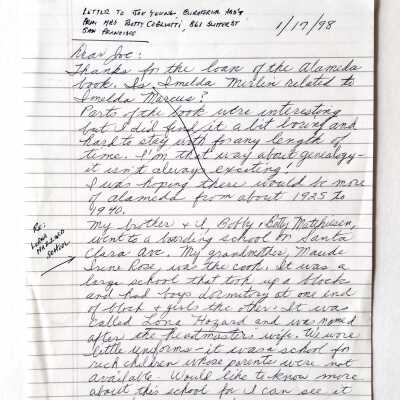 LETTER TO JOE YOUNG, BUREFERIA ASS'N
FROM MRS BETTY COGLIATTI, 861 SUTTER ST
SAN FRANCISCO
1/17/98
Dear Joe:
Thanks for the loan of the Alameda
book. Is Imelda Merlin related to
Imelda Marcus?
Parts of the book were interesting
but I did find it a bit boring and
hard to stay with for any length of
time. I'm that way about genealogy-
it isn't always exciting!
I was hoping there would be more
of Alameda from about 1925 to
1940.
Re:
LORNA
HAZZARD
SCHOOL
My brother & I, Bobby & Betty
went to a boarding school on Santa
Clara Ave. My grandmother, Maude
Irene Rose, was the cook. It was a
large school that took up a block
and had boys dormitory at one end
of block & girls the other. It was
called Lona Hazard and was named
after the headmasters wife. We wore
little uniforms - it was a school for
rich children whose parents were not
available. Would like to know more
about this school for I can see it